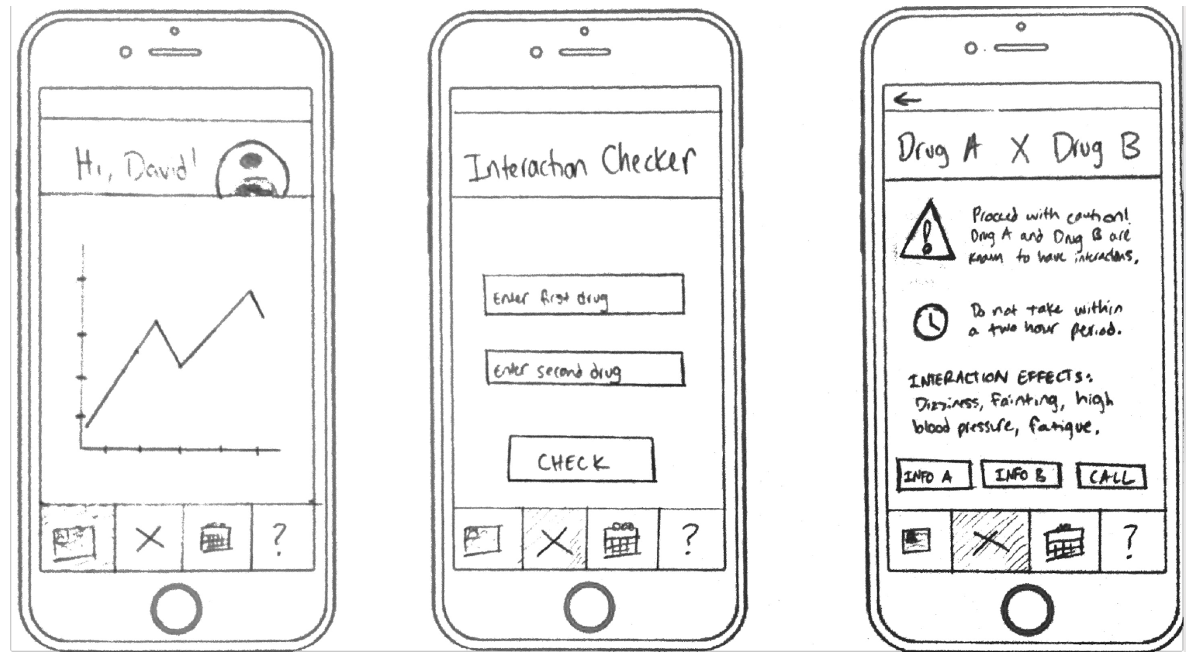 Hi, David!
?
Interaction Checker
Enter first drug
Enter second drug
CHECK
?
Drug A X Drug B
Proceed with caution!
Drug A and Drug B are
known to have interactions.
Do not take within
a two hour period.
INTERACTION EFFECTS:
Dizziness, fainting, high
blood pressure, fatigue.
INFO A
INFO B
CALL
?